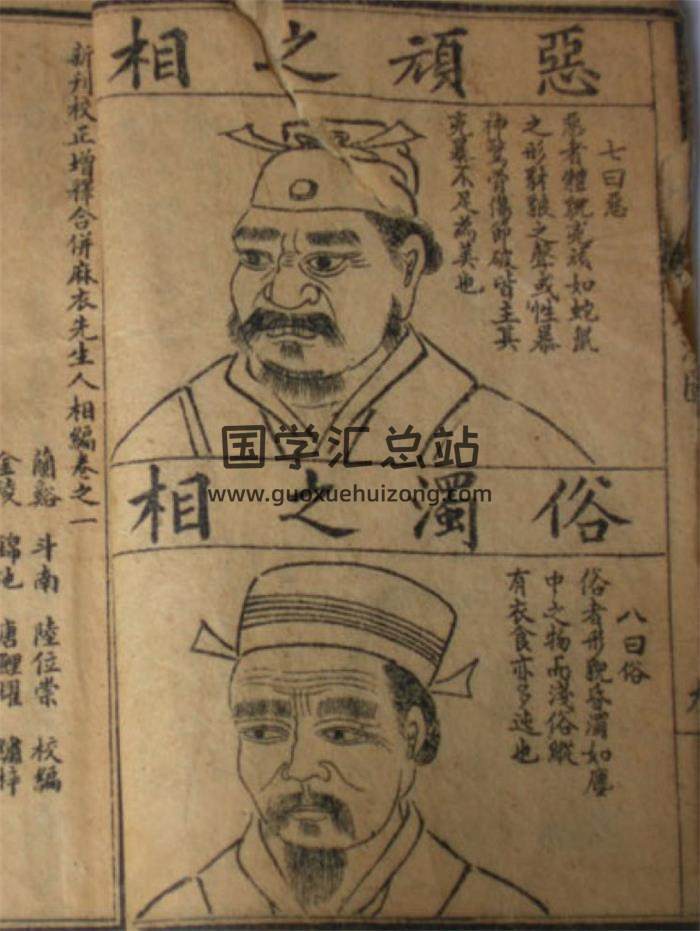 惡頑之相
七曰惡
惡者體貌兇頑如蛇鼠
之形豺狼之聲或性暴
神驚骨傷節破皆主其
兇暴不足為美也
俗濁之相
八曰俗
俗者形貌昏濁如塵
中之物而淺俗縱
有衣食亦多迍也
新刊校正增釋合併麻衣先生人相編卷之一
蘭谿 斗南 陸位崇 校編
金陵 唐鯉耀 繡梓
国学汇总站
www.guoxuehuizong.com